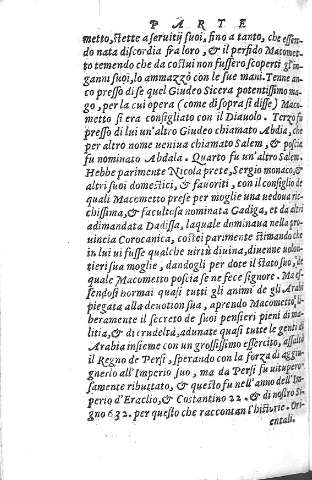 PARTE
metto, stette a seruitij suoi, fino a tanto, che essen-
do nata discordia fra loro, & il perfido Macomet-
to temendo che da costui non fussero scoperti gl'in-
ganni suoi, lo ammazzò con le sue mani. Tenne an-
co presso di se quel Giudeo Sicera potentissimo ma-
go, per la cui opera (come di sopra si disse) Maco-
metto si era consigliato con il Diauolo. Terzo fu
presso di lui un'altro Giudeo chiamato Abdia, che
per altro nome ueniua chiamato Salem, & poscia
fu nominato Abdala. Quarto fu un'altro Salem.
Hebbe parimente Nicola prete, Sergio monaco, &
altri suoi domestici, & fauoriti, con il consiglio de
quali Macometto prese per moglie una uedoua ric-
chissima, & facultosa nominata Gadiga, et da altri
adimandata Dadissa, laquale dominaua nella pro-
uincia Corocanica, costei parimente stimando che
in lui ui fusse qualche virtù diuina, diuenne uolon-
tieri sua moglie, dandogli per dote il stato suo, de
quale Macometto poscia se ne fece signore. Ma es-
sendosi hormai quasi tutti gli animi de gli Arabi
piegata alla deuotion sua, aprendo Macometto li-
beramente il secreto de suoi pensieri pieni di ma-
litia, & di crudeltà, adunate quasi tutte le genti di
Arabia insieme con un grossissimo essercito, assaltò
il Regno de Persi, sperando con la forza di aggiu-
gnerlo all'Imperio suo, ma da Persi fu uitupero-
samente ributtato, & questo fu nell'anno dell'Im-
perio d'Eraclio, & Costantino 22. & di nostro Si-
gno 632. per questo che raccontan l'historie. Ori-
entali.